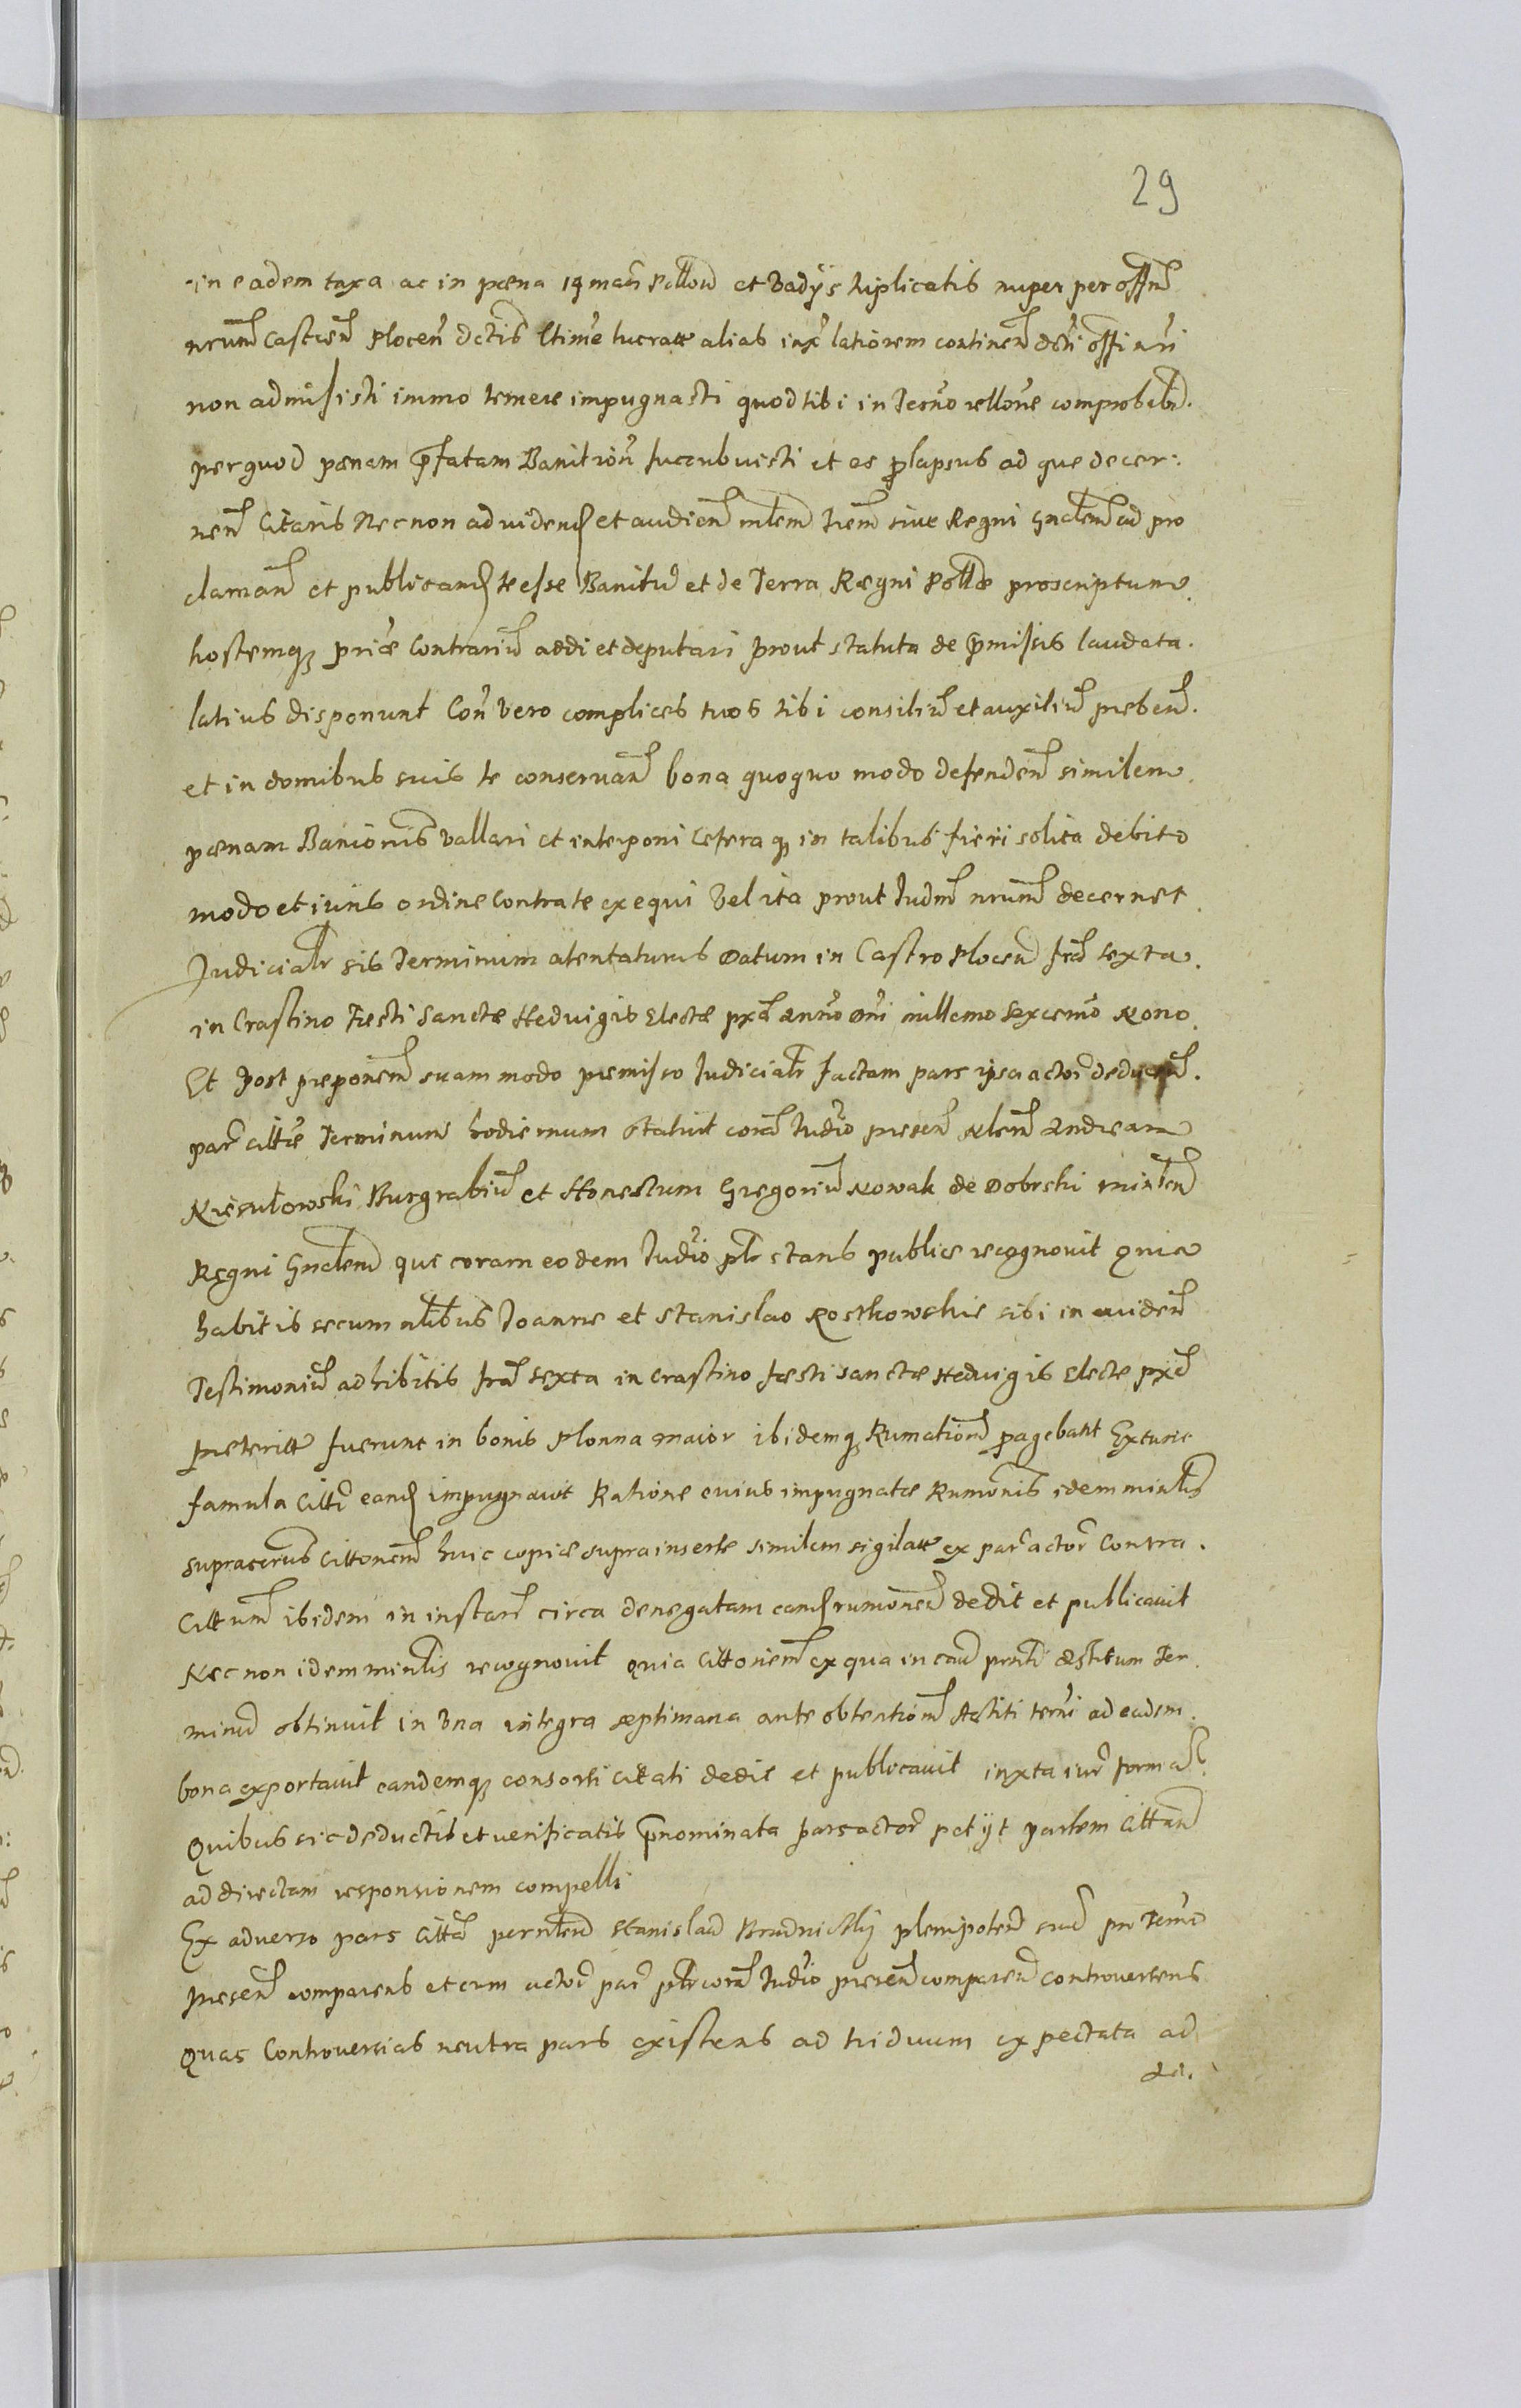 29
in eadem taxa ac in pœna 14 marc Pollon et Vadijs triplicatis nuper per Offm
nrum Castren Plocen dctis ltime lucratt alias inx latiorem continen dcti Offi nri
non admisisti immo temere impugnasti quod tibi in Termo rllone comprobabit.
per quod pœnam p̃fatam Banitionis succubuisti et es prolapsus ad que decer:
nen Citaris Nec non ad viden et audien mlem trem sive Regni gnalem ad pro
claman et publican te esse Banitu et de Terra Regni Pollæ proscriptum
hostemq priæ Contrariu addi et deputari prout statuta de p̃missis laudata.
latius disponunt Con vero complices tuos tibi consiliu et auxiliu preben.
et in domibus suis te conservan bona quoquo modo defenden similem
pœnam Banionis vallari et interponi Cetera q in talibus fieri solita debito
modo et iuris ordine Contra te exequi Vel ita prout Judm nrum decernet
Judicialr sis Terminum atentaturus Datum in Castro Plocen fra Sexta.
in Crastino Festi Sanctæ Hedvigis Electæ pxa Anno Dni millemo Sexcenmo Nono
Et post preponem suam modo premisso Judicialr factam pars ipsa actor deducen.
par cittæ Terminum hodiernum statuit cora Judio presen nlem Andream
Niesulowski Burgrabiu et Honestum Gregoriu Nowak de Dobrski minlem
Regni Gnalem qui coram eodem Judio plr stans publice recognovit Quia
habitis secum nlibus Joanne et Stanislao Rostkowskie sibi in eviden
Testimoniu adhibitis fra sexta in Crastino festi sanctæ Hedvigis Electe pxa
preteritt fuerunt in bonis Plonna maior ibidemq Rumation pagebant Extunc
famula Citti eand impugnavit Ratione cuius impugnatæ Rumonis idem minlis
supracrus Cittonem huic copiæ supra inserte similem sigilatt ex par actor Contra.
Cittum ibidem in instan circa denegatam eand rumonem dedit et publicavit
Nec non idem minlis recognovit Quia Cittonem ex qua in cau pnti astitum Ter
minu obtinuit in Una integra septimana ante obtention Astiti termi ad eadem
bona exportavit eandemq consorti citati dedit et publicavit iuxta iur forma.
Quibus sic deductis et verificatis p̃nominata pars actor petijt partem Cittam
ad directam responsionem compelli
Ex adverso pars Citta per nlem Stanislau Brudnicki plenipoten suu pro Termo
presen comparens et cum actor par plr cora Judio presen comparen controvertens
Quas Controversias neutra pars existens ad triduum expectata ad